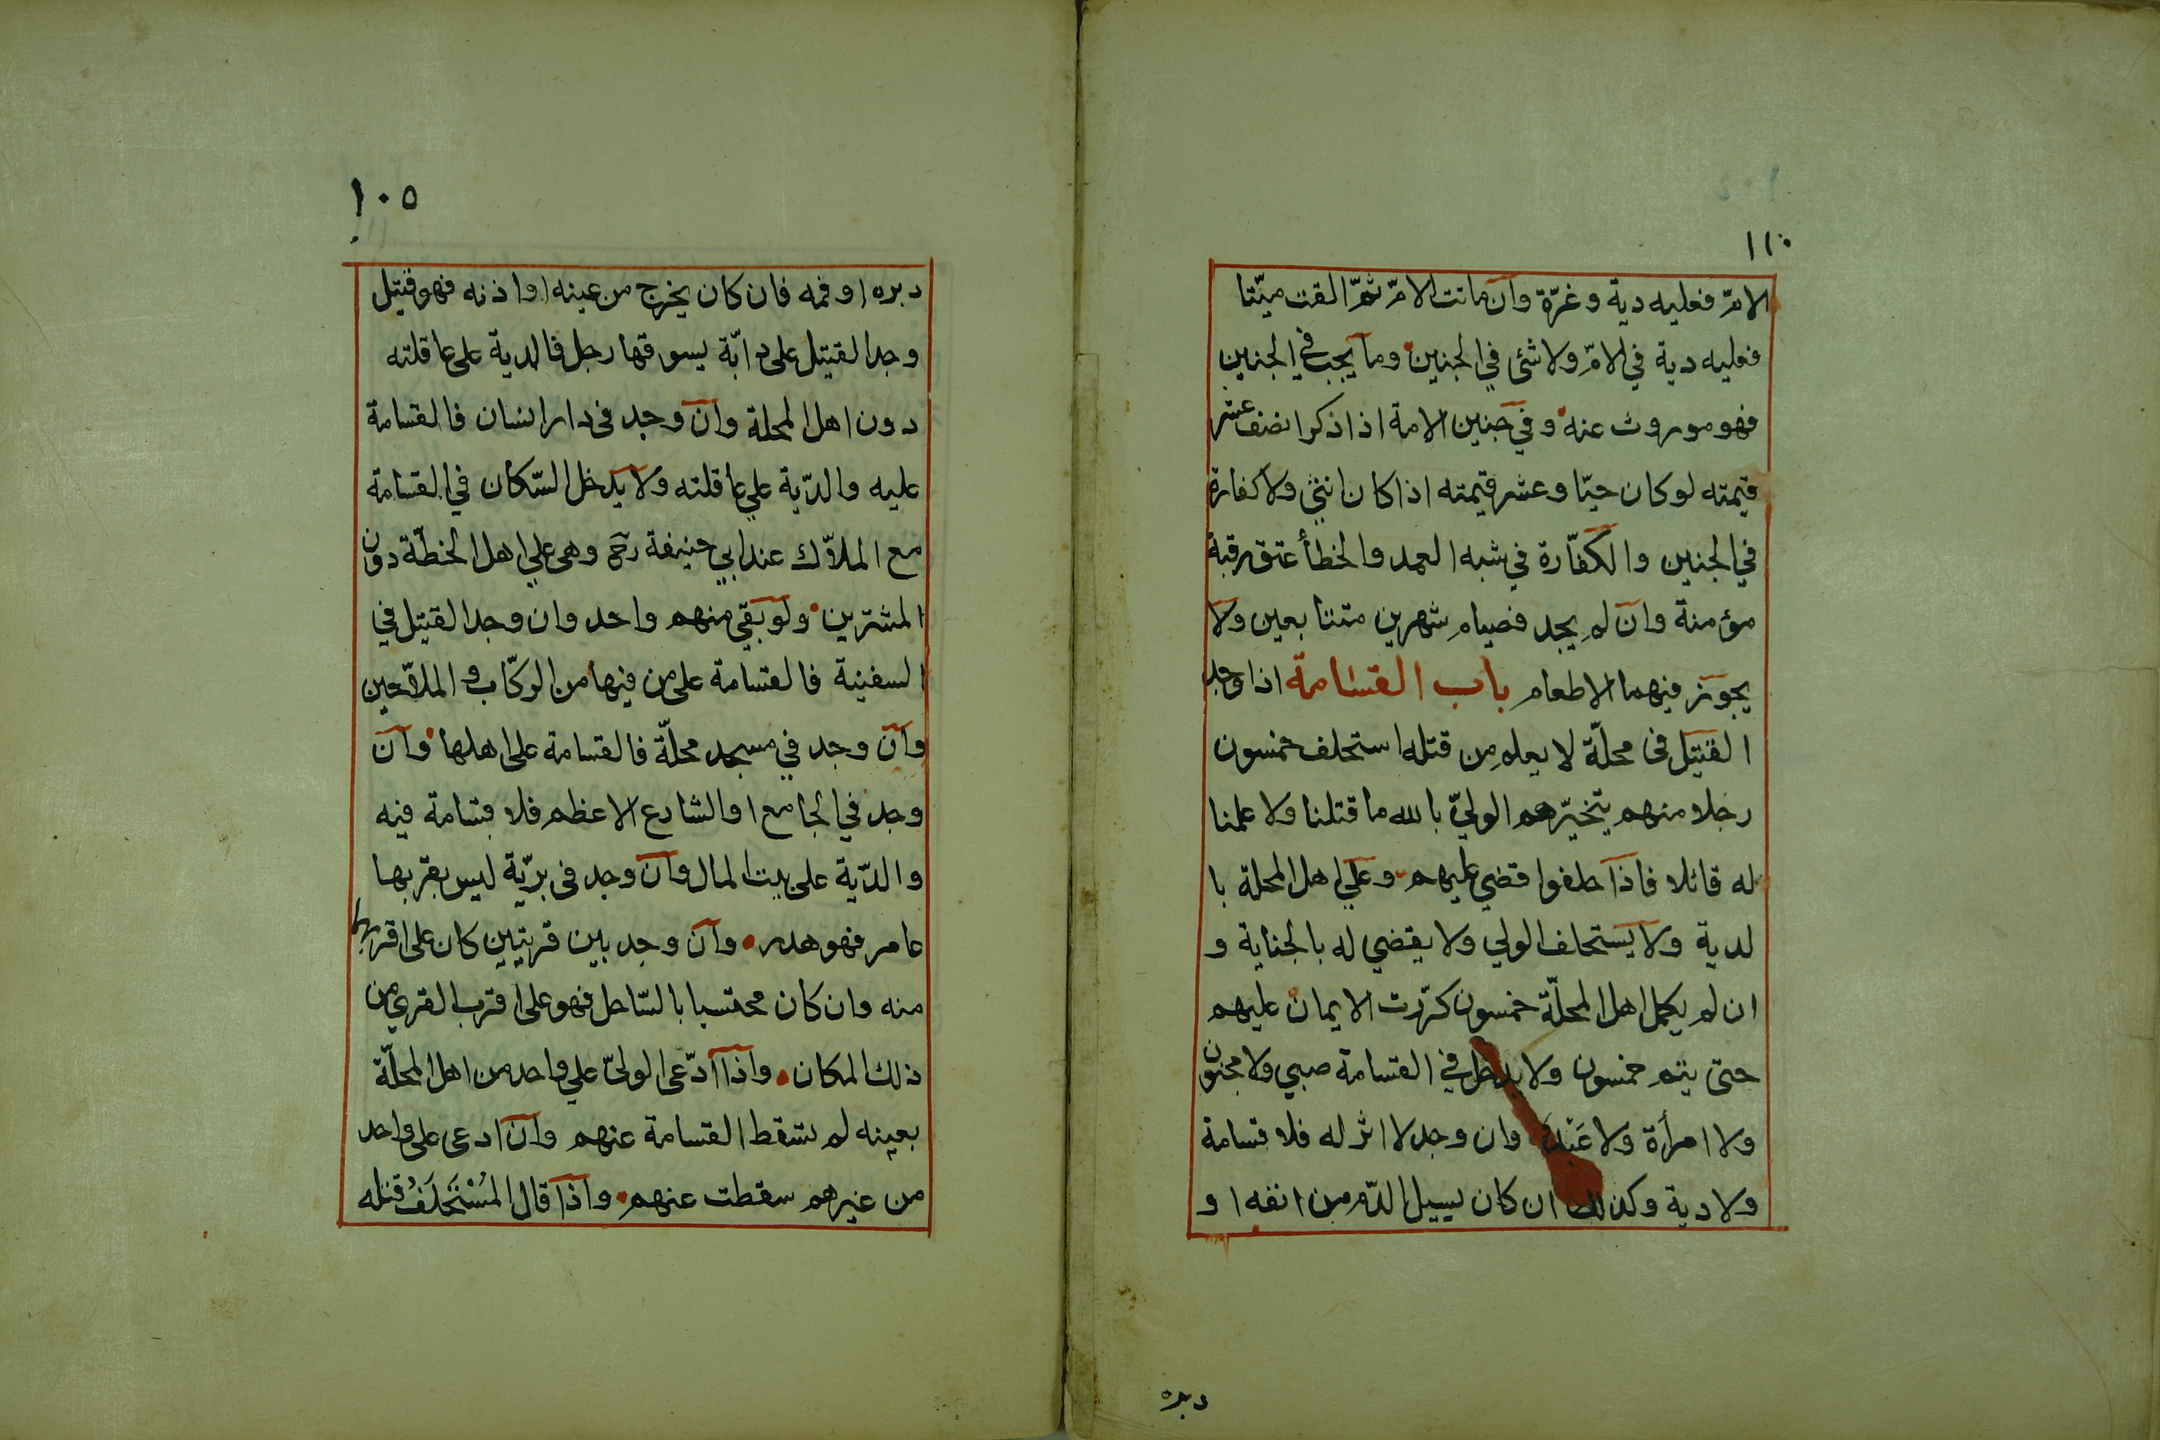 ١١٠
الامّ فعليه دية وغرّة وان ماتت الامّ ثمّ القت ميّتا
فعليه دية في الامّ ولا شئ في الجنين وما يجب في الجنين
فهو موروث عنه وفي جنين الامة اذا ذكرا نصف عشر
قيمته لو كان حيّا وعشر قيمته اذا كان انثي ولا كفارة
في الجنين والكفّارة في شبه العمد والخطأ عتق رقبة
مؤمنة وان لم يجد فصيام شهرين متتابعين ولا
يجوز فيهما الاطعام باب القسامة اذا وجد
القتيل في محلّة لا يعلم من قتله استحلف خمسون
رجلا منهم يتخيّرهم الوليّ بالله ما قتلنا ولا علمنا
له قاتلا فاذا حلفوا قضي عليهم وعلي اهل المحلة با
لدية ولا يستحلف الولي ولا يقضي له بالجناية و
ان لم يكمل اهل المحلّة خمسون كرّرت الايمان عليهم
حتى يتم خمسون ولا يدخل في القسامة صبي ولا مجنون
ولا امرأة ولا عَبْد وان وجد لا اثر له فلا قسامة
ولا دية وكذلك ان كان يسيل الدّم من انفه او
دبره
١٠٥
دبره او فمه فان كان يخرج من عينه او اذنه فهو قتيل
وجد القتيل على دابّة يسوقها رجل فالدية على عاقلته
دون اهل المحلة وان وجد في دار انسان فالقسامة
عليه والدّية علي عاقلته ولا يدخل السّكان في القسامة
مع الملاّك عند ابي حنيفة رحمه وهى علي اهل الخطّة دون
المشترين ولو بقي منهم واحد وان وجد القتيل في
السفينة فالقسامة على من فيها من الركّاب و الملاّحين
وان وجد في مسجد محلّة فالقسامة على اهلها وان
وجد في الجامع او الشارع الاعظم فلا قسامة فيه
والدّية على بيت المال وان وجد في بريّة ليس بقربها
عامر فهو هدر وان وجد بين قريتين كان على اقربهما
منه وان كان محتسبا بالسّاحل فهو على اقرب القري من
ذلك المكان واذا ادّعى الوليّ علي واحد من اهل المحلّة
بعينه لم تسقط القسامة عنهم وان ادعى على واحد
من غيرهم سقطت عنهم واذا قال المُسْتَحْلَفُ قتله